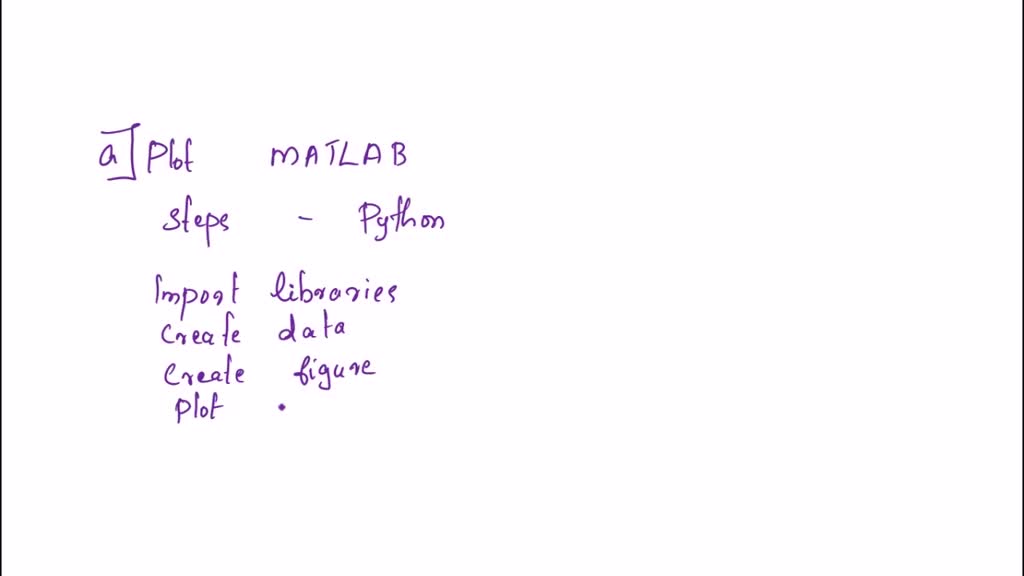 a] Plot MATLAB
steps - Python
Import libraries
Create data
Create figure
plot .